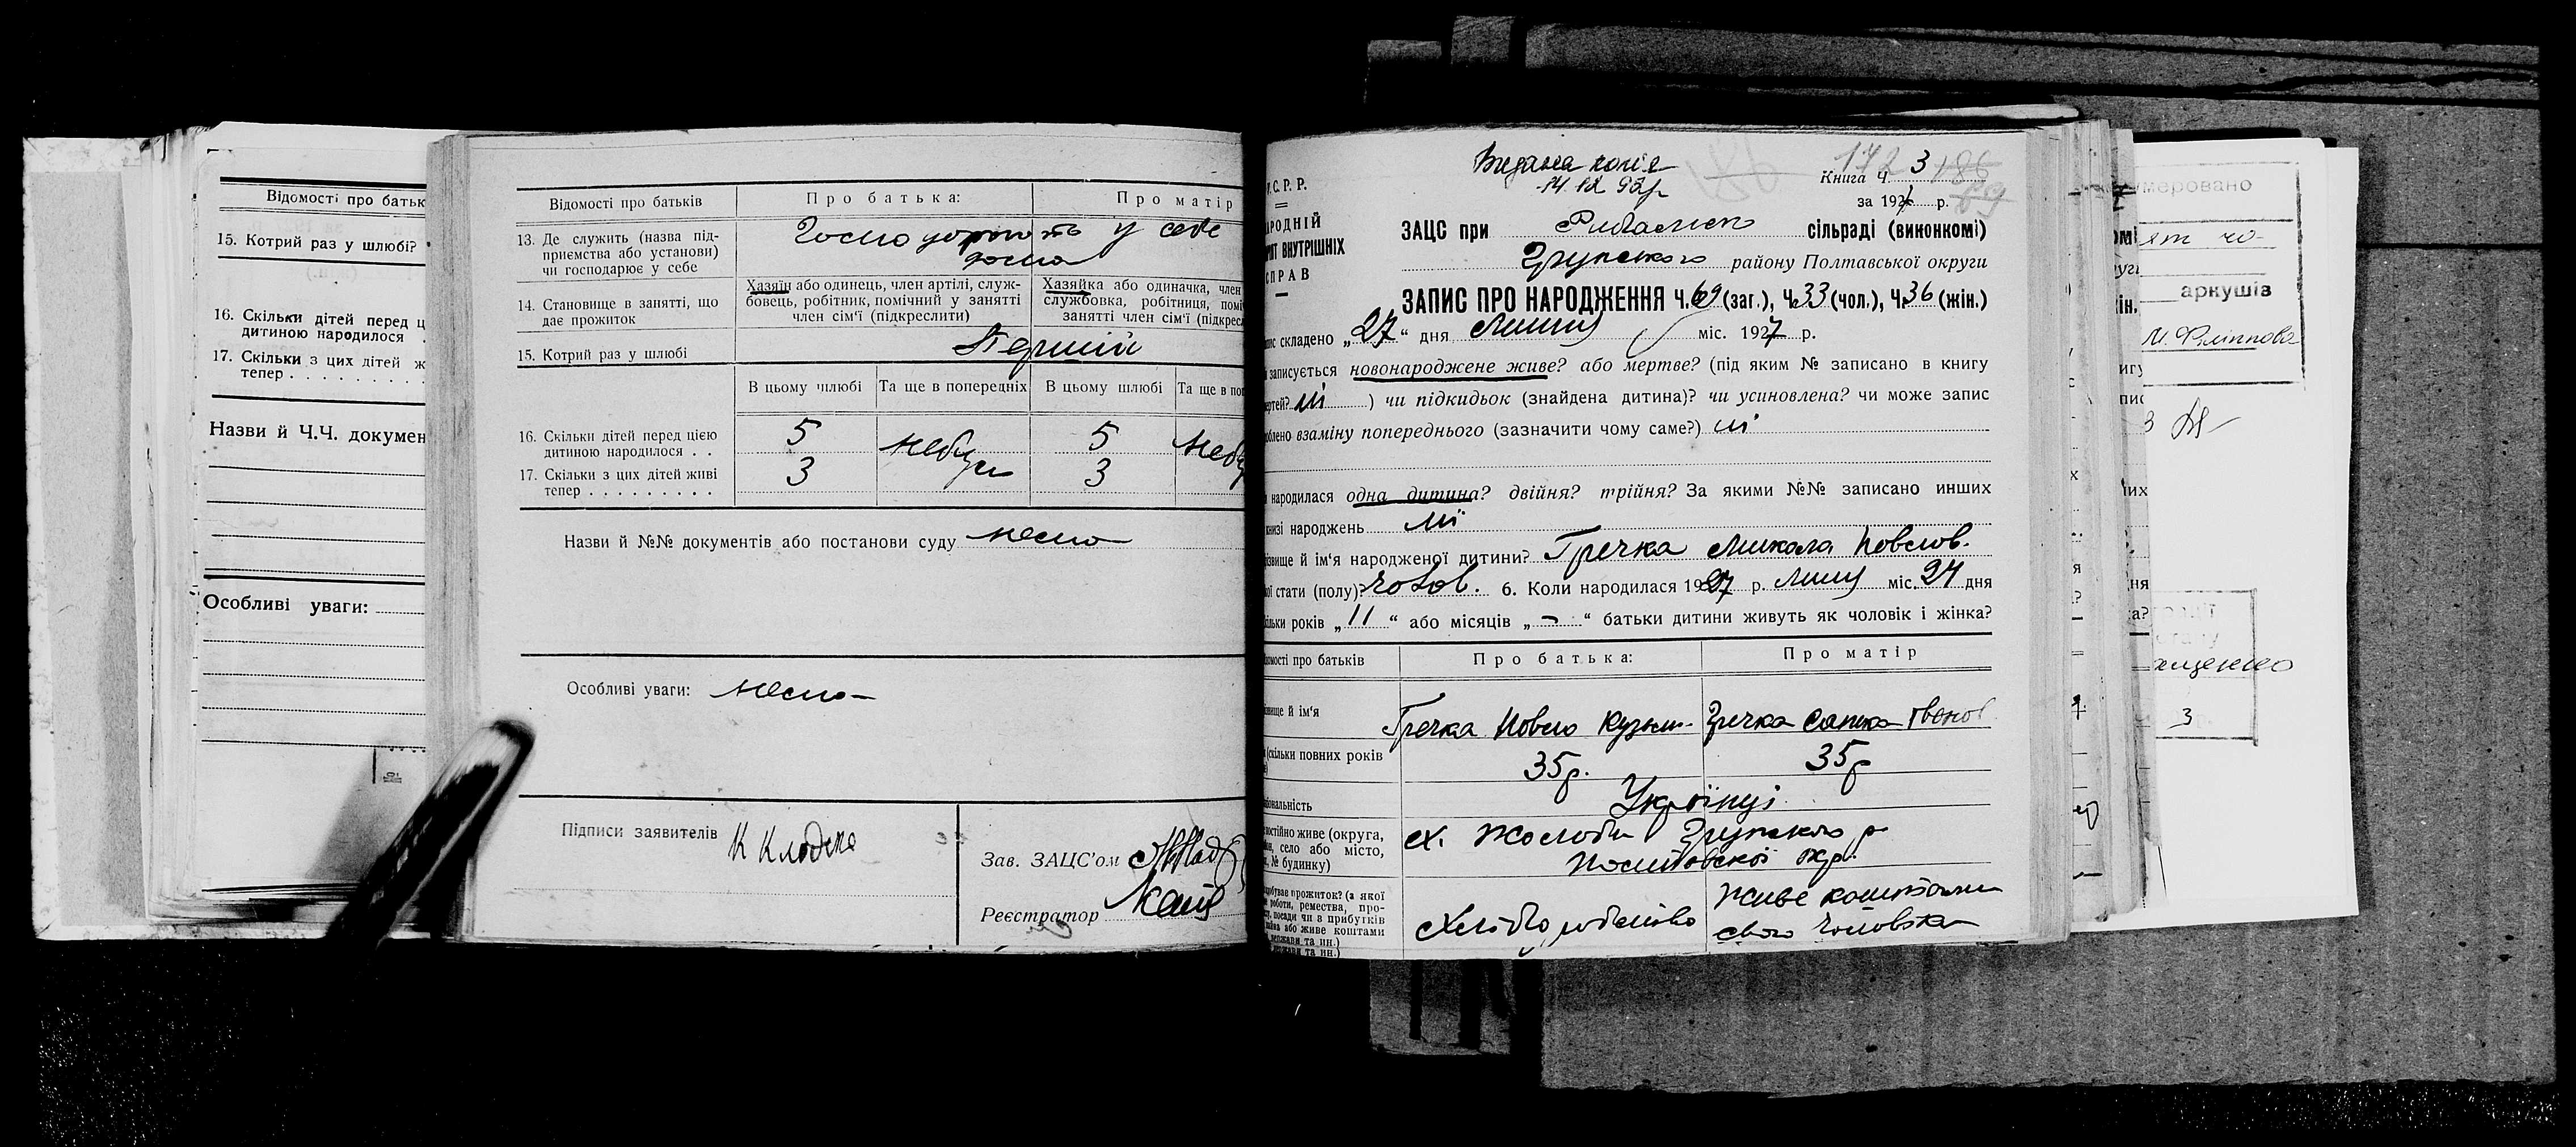 Відомості про батьк
15. Котрий раз у шлюбі?
16. Скільки дітей перед ц
дитиною народилося .
17. Скільки з цих дітей ж
тепер . . . . . . . . .
Назви й Ч.Ч. докумен
Особливі уваги:
Відомості про батьків
Про батька:
Про матір
13. Де служить (назва під-
приємства або установи)
чи господарює у себе
у себе
14. Становище в занятті, що
дає прожиток
Хазяїн або одинець, член артілі, служ-
бовець, робітник, помічний у занятті
член сім'ї (підкреслити)
Хазяйка або одиначка, член
службовка, робітниця, помі
занятті член сім'ї (підкрес
15. Котрий раз у шлюбі
Перший
В цьому шлюбі
Та ще в попередніх
В цьому шлюбі
Та ще в поп
16. Скільки дітей перед цією
дитиною народилося . .
5
небули
5
17. Скільки з цих дітей живі
тепер . . . . . . . . .
3
3
Назви й №№ документів або постанови суду нема
Особливі уваги: нема
Підписи заявителів
Зав. ЗАЦС'ом
Реєстратор
Видана копія
14.12 93р
С. Р. Р.
РОДНІЙ
ВНУТРІШНІХ
СПРАВ
Книга Ч. 3
за 192 р.
ЗАЦС при сільраді (виконкомі)
Грунського району Полтавської округи
ЗАПИС ПРО НАРОДЖЕННЯ Ч. 69 (заг.), Ч. 33 (чол.), Ч. 36 (жін.)
складено „27“ дня Липня міс. 1927 р.
записується новонароджене живе? або мертве? (під яким № записано в книгу
ні ) чи підкидьок (знайдена дитина)? чи усиновлена? чи може запис
взаміну попереднього (зазначити чому саме?) ні
народилася одна дитина? двійня? трійня? За якими №№ записано инших
народжень ні
ім'я народженої дитини? Гречка Микола Повлов.
стати (полу)? чолов. 6. Коли народилася 1927 р. Липня міс. 24 дня
років „11“ або місяців „-“ батьки дитини живуть як чоловік і жінка?
про батьків
Про батька:
Про матір
й ім'я
Гречка Повло Кузьм.
Гречка
скільки повних років
35р.
35р
Українці
постійно живе (округа,
село або місто,
№ будинку)
х. Жолоби Грунського р
Полтавської окр.
прожиток? (з якої
роботи, ремества, про-
посади чи в прибутків
або живе коштами
держави та ин.)
Хліборобство
Живе коштами
свого чоловіка
умеровано
аркушів
М. Філіппова
3